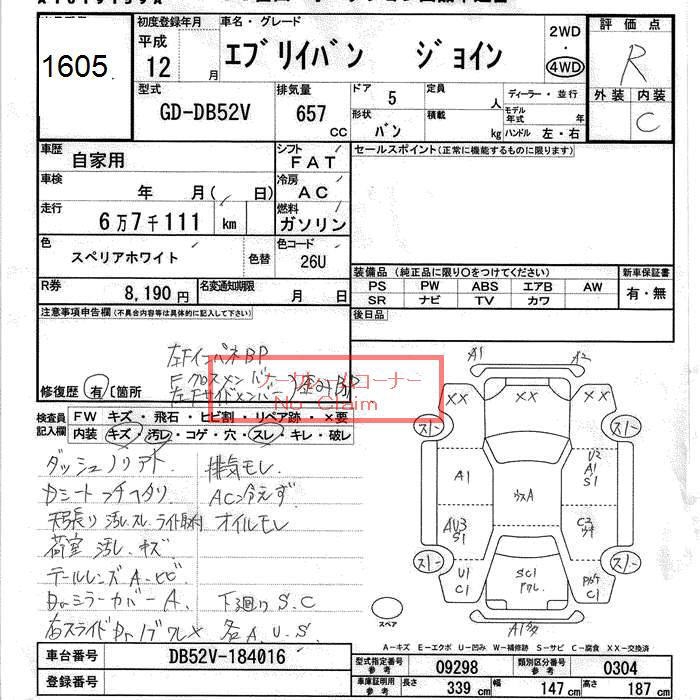 1605.
初度登録年月
平成
12 月
車名・グレード
エブリイバン ジョイン
2WD
・
4WD
評価点
R
外装 内装
C
型式
GD-DB52V
排気量
657 CC
ドア
5
定員
人
ディーラー・並行
形状
バン
積載
kg
モデル年式 年
ハンドル 左・右
車歴
自家用
シフト
FAT
セールスポイント(正常に機能するものに限ります)
車検
年 月( 日)
冷房
AC
走行
6万7千111 km
燃料
ガソリン
色
スペリアホワイト
色替
色コード
26U
R券
8,190円
名変通知期限
月 日
装備品 (純正品に限り○をつけてください)
PS PW ABS エアB AW
SR ナビ TV カワ
新車保証書
有・無
後日品
注意事項申告欄(不具合内容等は具体的に記入して下さい)
左FインパネBP
Fクロスメンバー
左Fサイドメンバー
ノークレームコーナー
No Claim
修復歴 有[箇所
検査員記入欄
FW キズ・飛石・ヒビ割・リペア跡・×要
内装 キズ・汚レ・コゲ・穴・スレ・キレ・破レ
ダッシュノリアト. 排気モレ.
AC冷えず.
天張り 汚レ.スレ. オイルモレ
荷室 汚レ.キズ
テールレンズA.ヒビ
DrミラーカバーA. 下廻りS.C
各A.U.S.
A1 A2
XX XX XX
スノー スノー
A1
U2
A1
S1
AU3
S1
U1
C1
SC1
C1
スノー スノー
スペア
A1多
A-キズ E-エクボ U-凹み W-補修跡 S-サビ C-腐食 XX-交換済
車台番号 DB52V-184016
登録番号
型式指定番号 参考 09298 類別区分番号 参考 0304
車庫証明用 参考 長さ 339 cm 幅 147 cm 高さ 187 cm